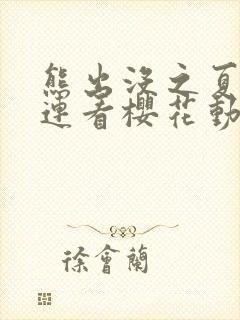 熊出没之夏
连看櫻花動
徐會蘭